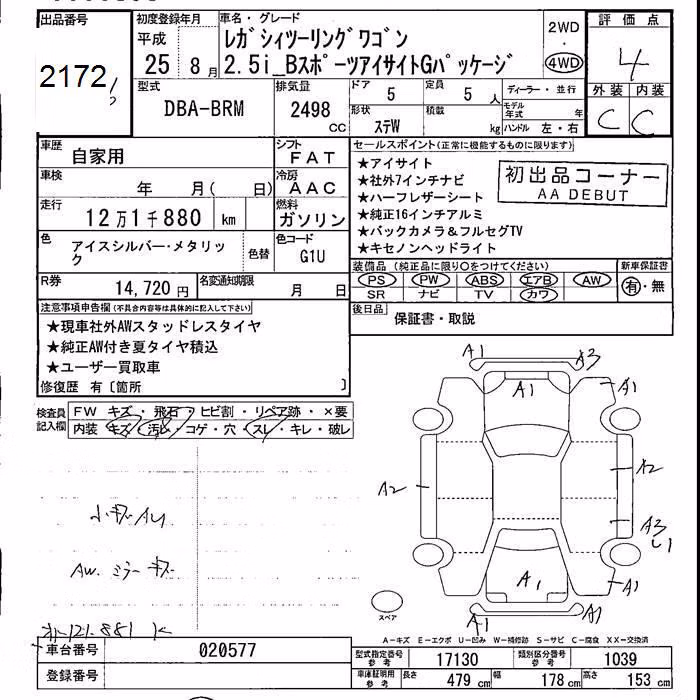 出品番号
2172
初度登録年月
平成
25 8月
車名・グレード
レガシィツーリングワゴン
2.5i_BスポーツアイサイトGパッケージ
2WD
・
4WD
評価点
4
外装 内装
C C
型式
DBA-BRM
排気量
2498
CC
ドア
5
定員
5人
形状
ステW
積載
kg
ディーラー・並行
モデル年式 年
ハンドル 左・右
車歴
自家用
シフト
FAT
車検
年 月( 日)
冷房
AAC
走行
12万1千880 km
燃料
ガソリン
色
アイスシルバー・メタリック
色替
色コード
G1U
R券
14,720円
名変通知期限
月 日
セールスポイント(正常に機能するものに限ります)
★アイサイト
★社外7インチナビ
★ハーフレザーシート
★純正16インチアルミ
★バックカメラ&フルセグTV
★キセノンヘッドライト
初出品コーナー
AA DEBUT
装備品(純正品に限り○をつけてください)
PS PW ABS エアB AW
SR ナビ TV カワ
新車保証書
有・無
後日品
保証書・取説
注意事項申告欄(不具合内容等は具体的に記入して下さい)
★現車社外AWスタッドレスタイヤ
★純正AW付き夏タイヤ積込
★ユーザー買取車
修復歴 有〔箇所 〕
検査員記入欄
FW キズ・飛石・ヒビ割・リペア跡・×要
内装 キズ・汚レ・コゲ・穴・スレ・キレ・破レ
小キズAU
AW.ミラーキズ
121.881 K
A1
A3
A1
A1
A2
A2
A3
A1
A1
A1
A1
スペア
A-キズ E-エクボ U-凹み W-補修跡 S-サビ C-腐食 XX-交換済
車台番号
020577
登録番号
型式指定番号参考
17130
類別区分番号参考
1039
車庫証明用参考
長さ 479 cm 幅 178 cm 高さ 153 cm